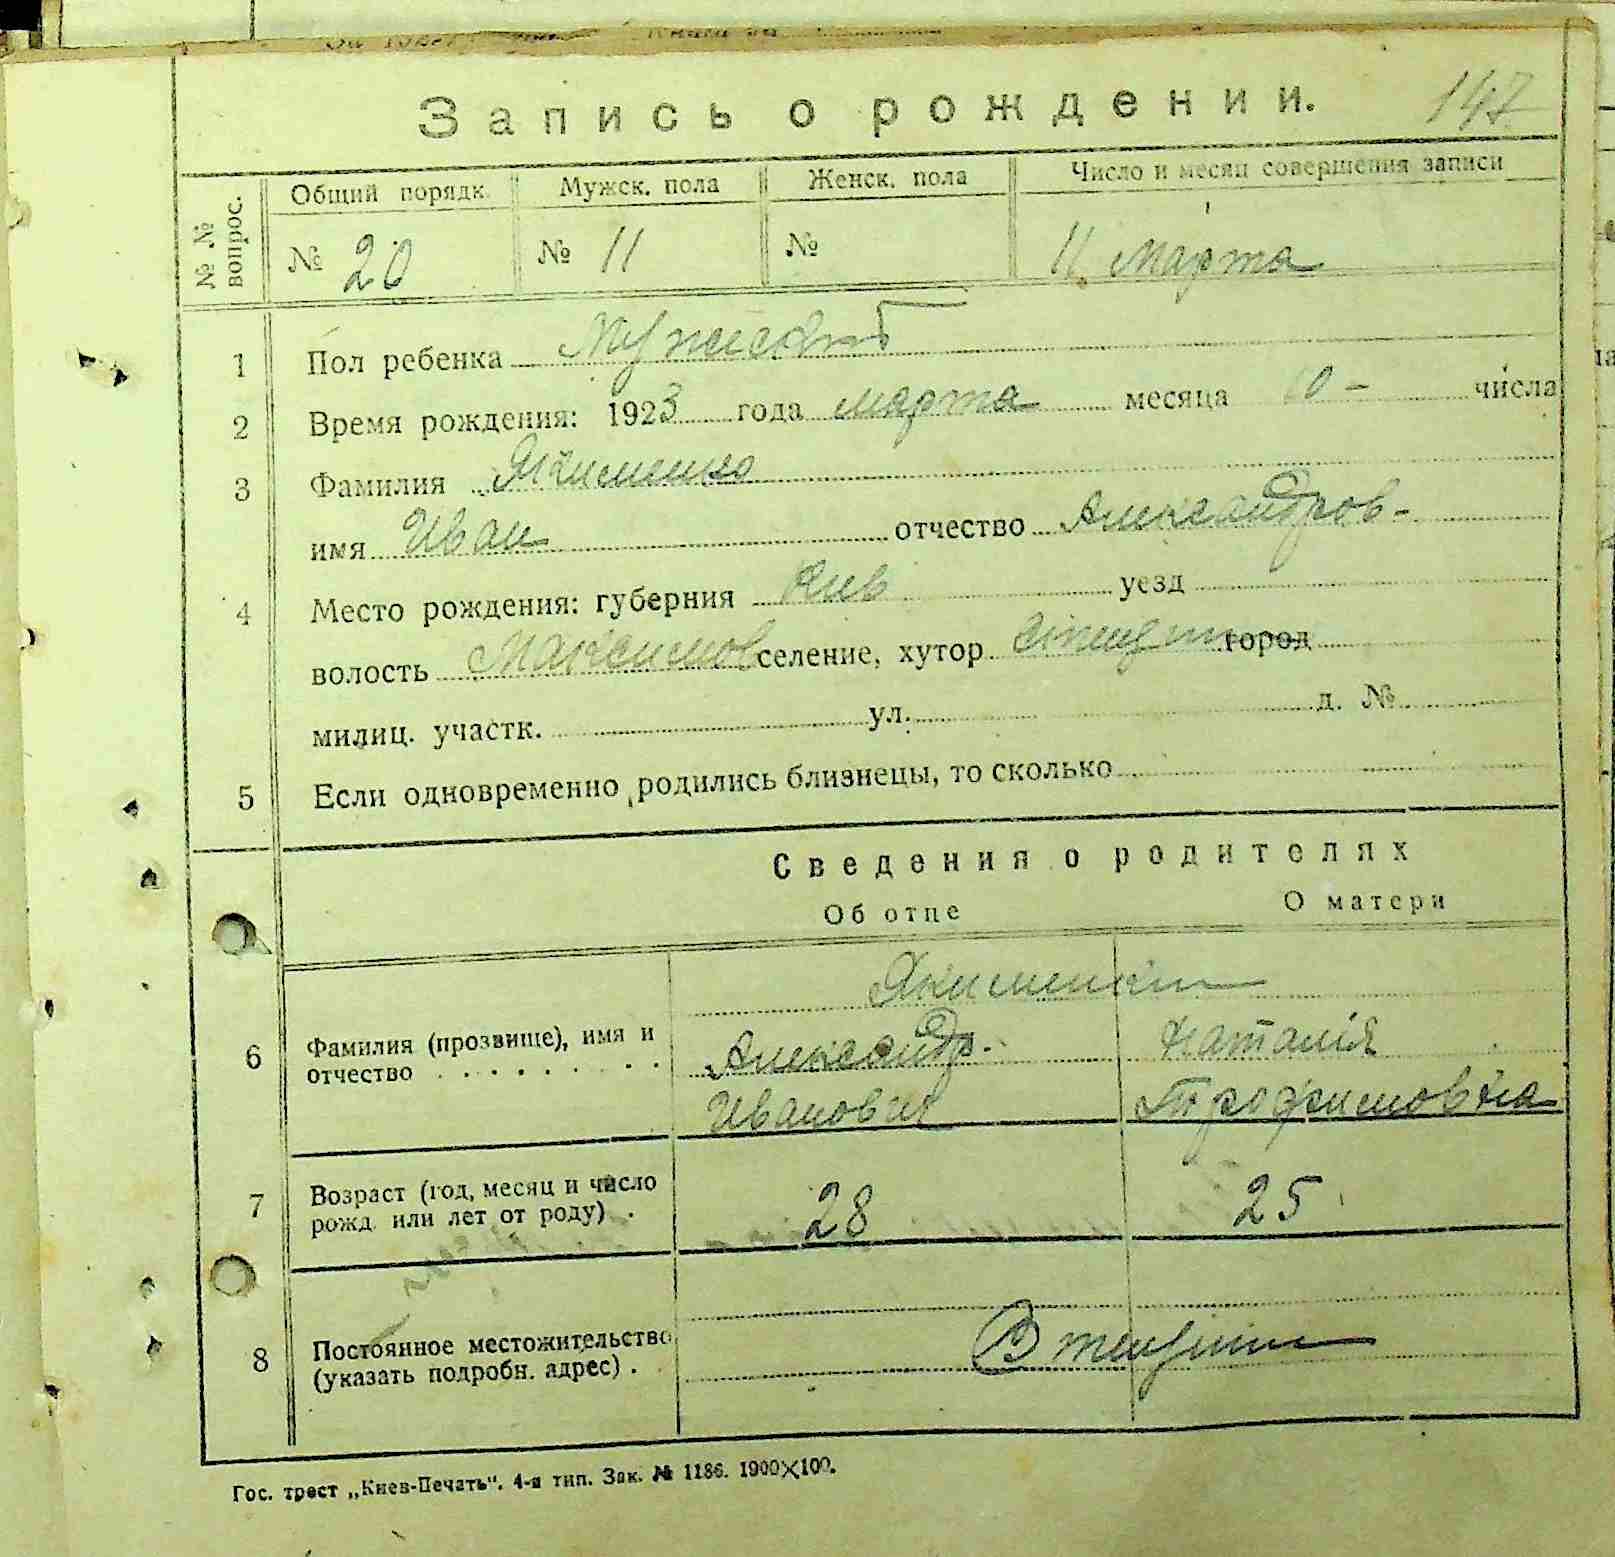 147
Запись о рождении.
№ № вопрос.
Общий порядк. Мужск. пола Женск. пола Число и месяц совершения записи
№ 20 № 11 № 11 марта
1 Пол ребенка Мужской
2 Время рождения: 1923 года марта месяца 10 - числа
3 Фамилия Якименко
имя Иван отчество Александров-
4 Место рождения: губерния Киев уезд
волость Максимов селение, хутор город
милиц. участк. ул. д. №
5 Если одновременно родились близнецы, то сколько
Сведения о родителях
Об отце О матери
Якименки
6 Фамилия (прозвище), имя и Александр. Наталія
отчество . . . . . . . . . Иванович Трофимовна
7 Возраст (год, месяц и число
рожд. или лет от роду) . 28 25
8 Постоянное местожительство
(указать подробн. адрес) .
Гос. трест „Киев-Печать“. 4-я тип. Зак. № 1186. 1900×100.